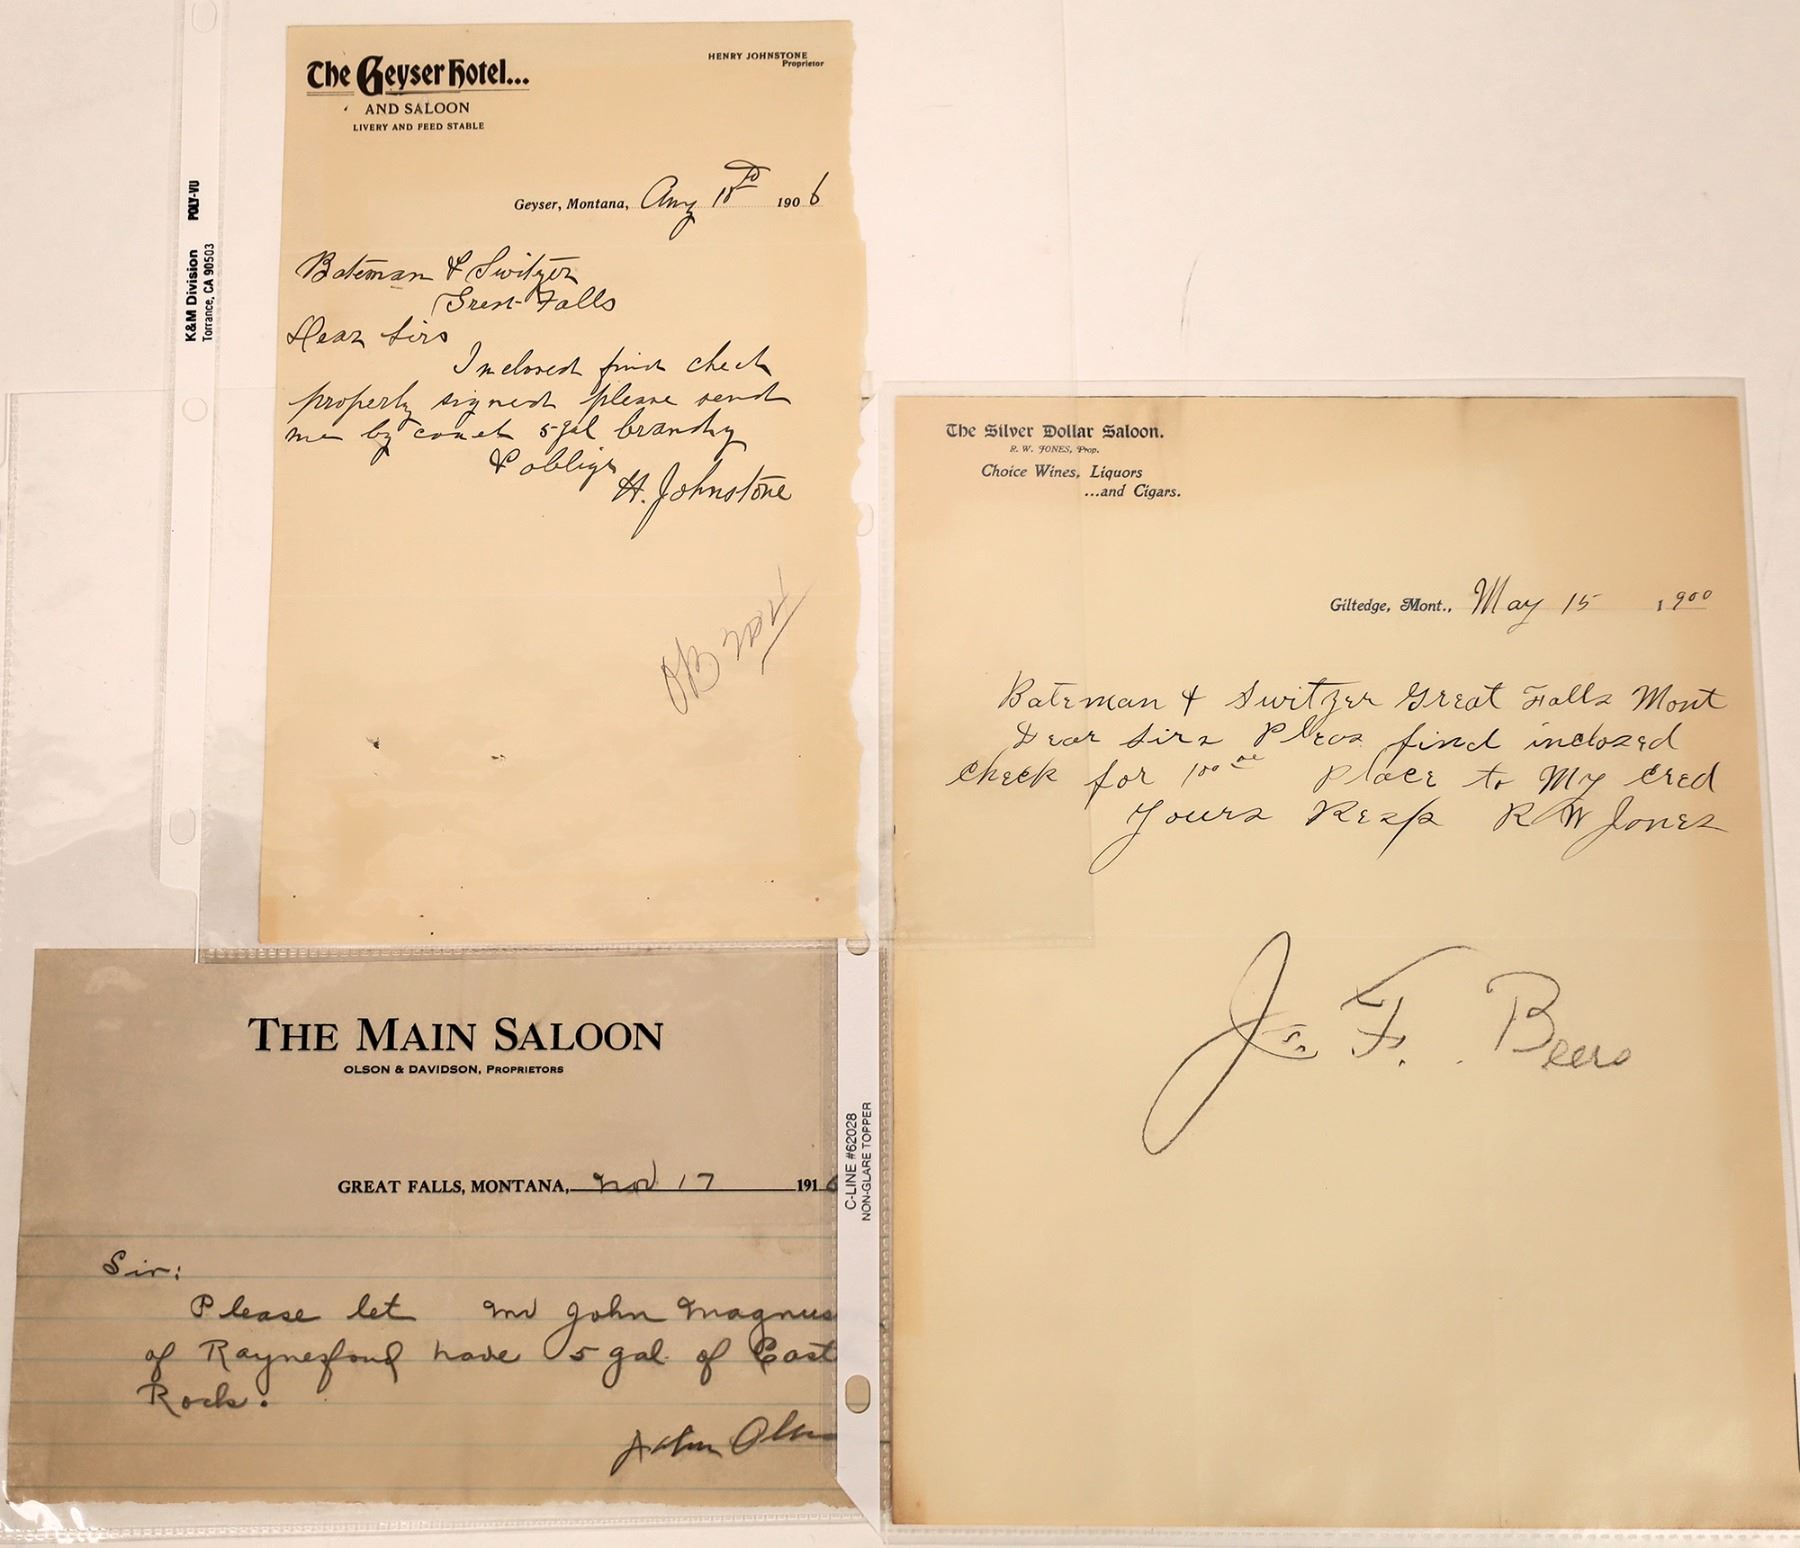 The Geyser Hotel...
AND SALOON
LIVERY AND FEED STABLE
HENRY JOHNSTONE
Proprietor
Geyser, Montana, Aug 1906
Bateman & Switzer
Great Falls
Dear Sirs
Inclosed find check
properly signed please send
me by 5 gal brandy
& oblige
H. Johnstone
K&M Division POLY-VU
Torrance, CA 90503
The Silver Dollar Saloon.
R. W. JONES, Prop.
Choice Wines, Liquors
...and Cigars.
Giltedge, Mont., May 15 1900
Bateman & Switzer Great Falls Mont
Dear Sirs Pleas find inclosed
check for 100 Place to My cred
Yours Resp R W Jones
Js. F. Beers
THE MAIN SALOON
OLSON & DAVIDSON, PROPRIETORS
GREAT FALLS, MONTANA, Nov 17 1916
Sir:
Please let Mr John Magnus
of Raynesford have 5 gal. of East
Rock.
John
C-LINE #62028
NON-GLARE TOPPER